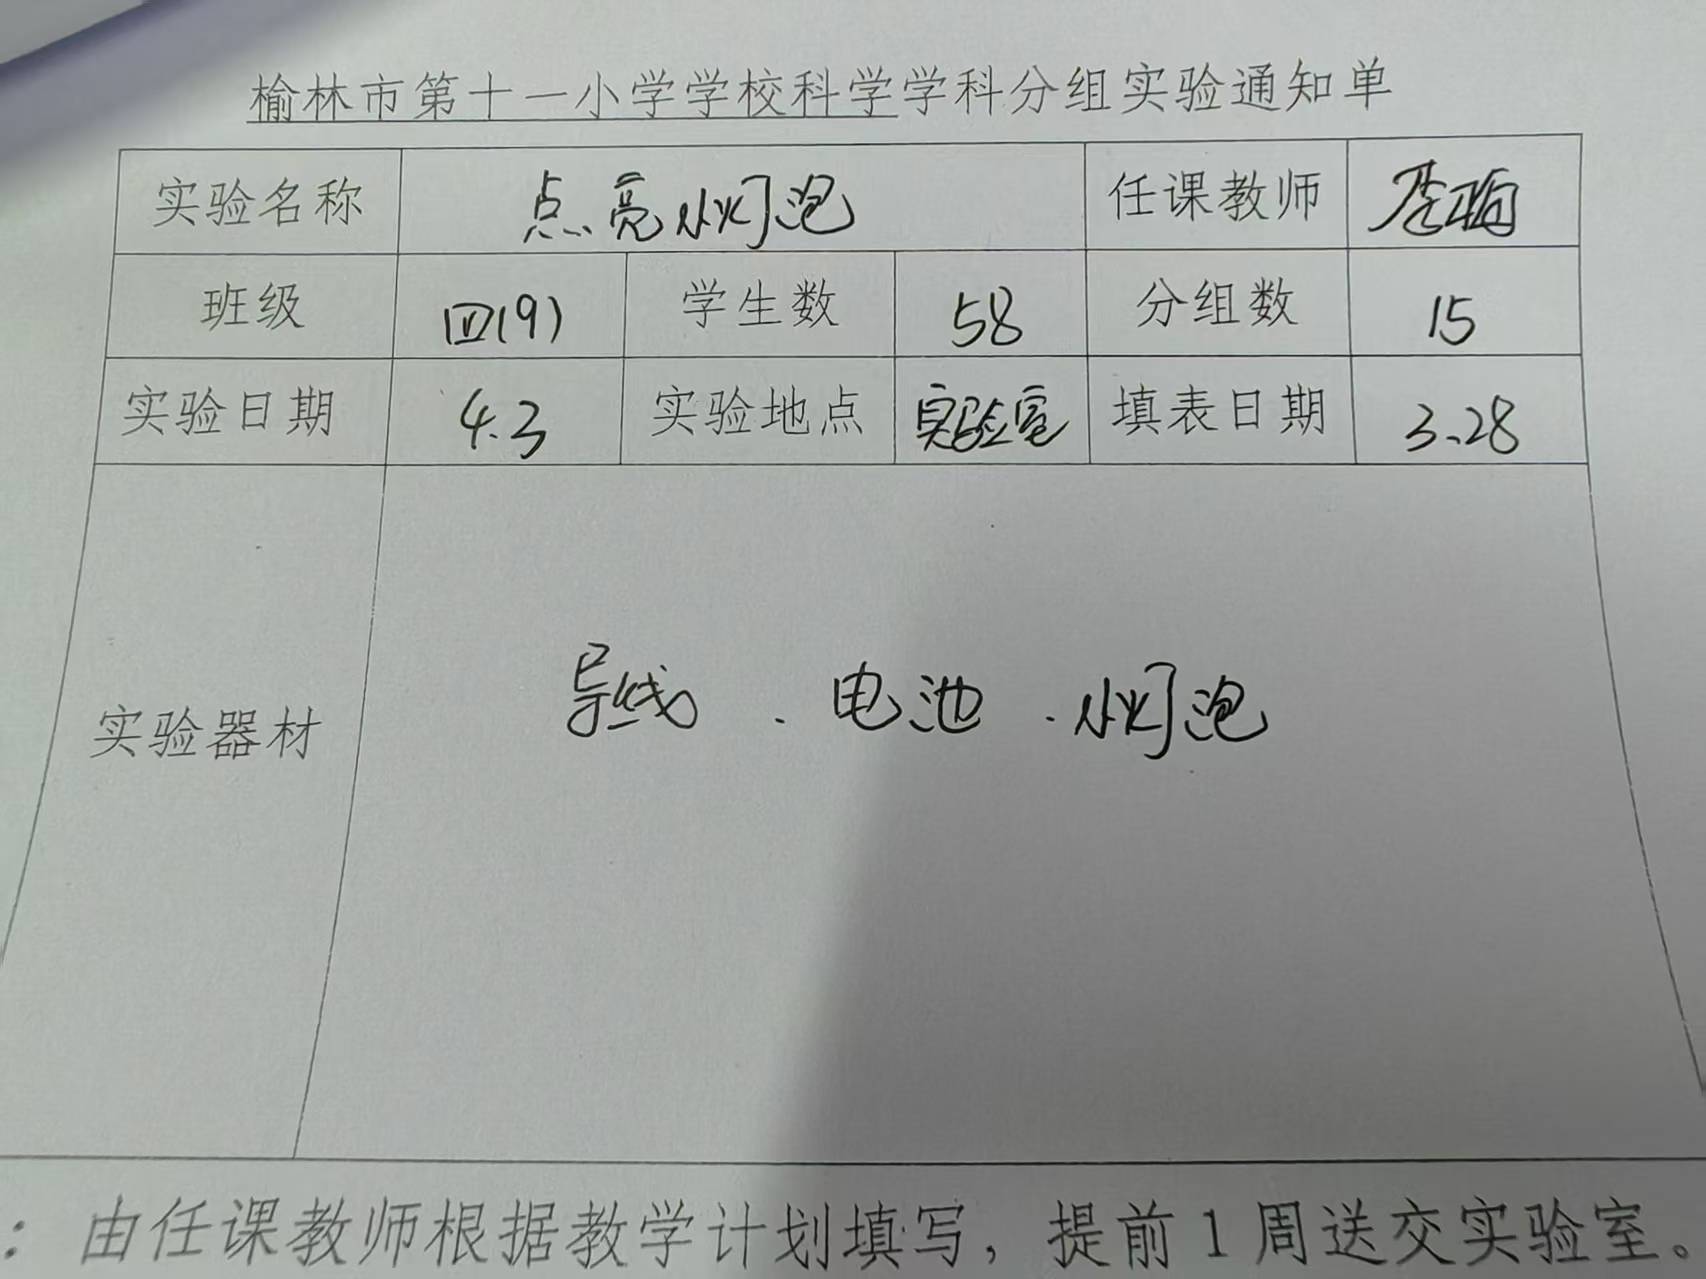 榆林市第十一小学学校科学学科分组实验通知单
实验名称 点亮小灯泡 任课教师
班级 四(9) 学生数 58 分组数 15
实验日期 4.3 实验地点 实验室 填表日期 3.28
实验器材 导线、电池、小灯泡
：由任课教师根据教学计划填写，提前1周送交实验室。